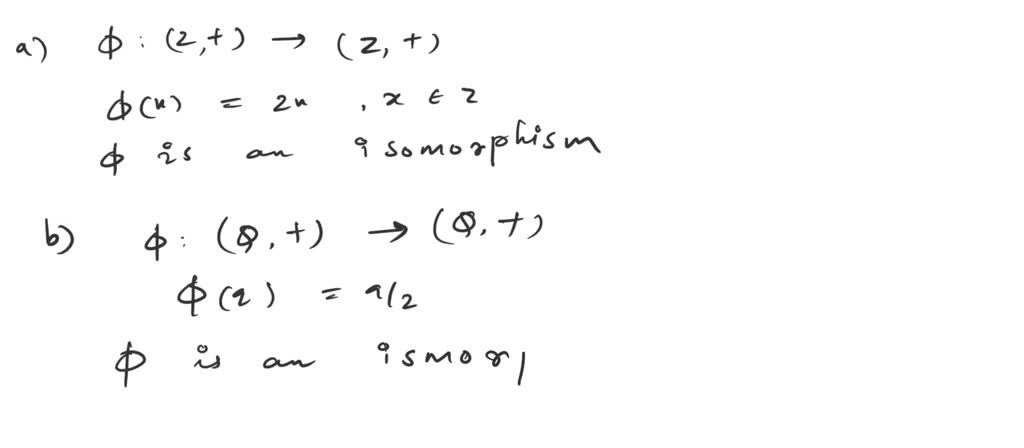 a) ϕ : (Z,+) → (Z,+)
ϕ(x) = 2x , x ∈ Z
ϕ is an isomorphism
b) ϕ: (Q,+) → (Q,+)
ϕ(q) = q/2
ϕ is an ismorp